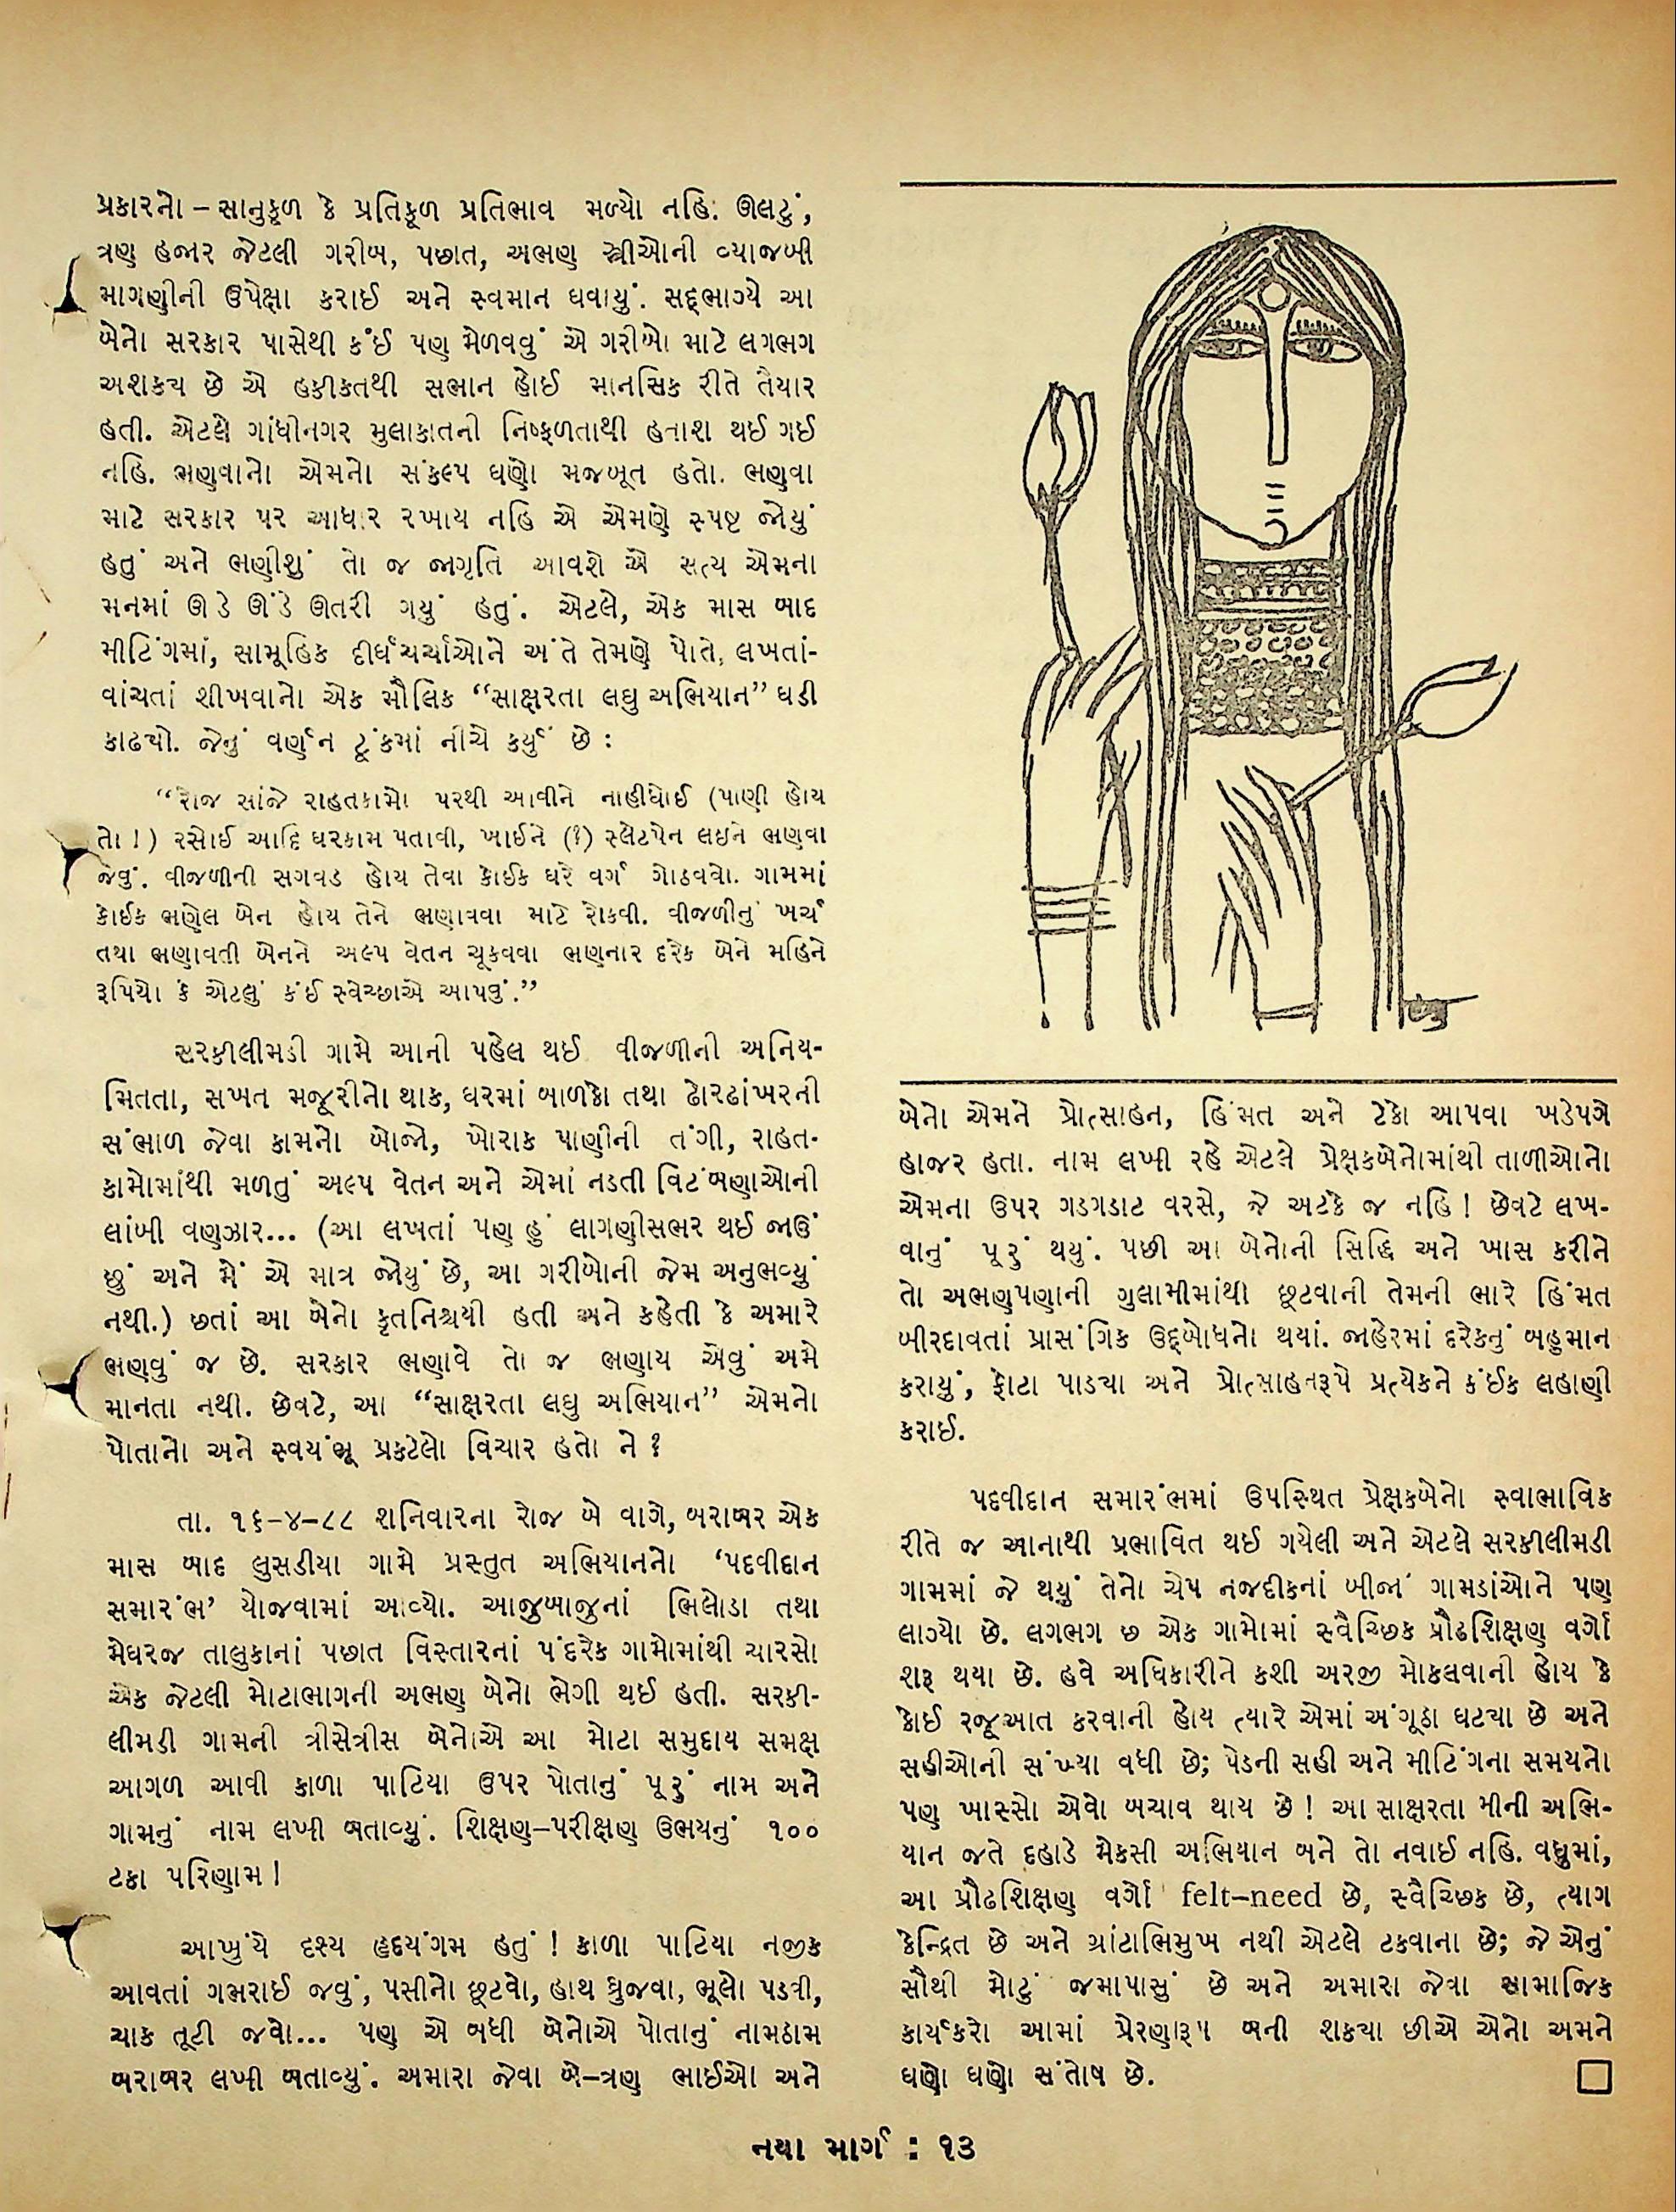 પ્રકારનો – સાનુકૂળ કે પ્રતિકૂળ પ્રતિભાવ મળ્યો નહિ. ઊલટું,
ત્રણ હજાર જેટલી ગરીબ, પછાત, અભણ સ્ત્રીઓની વ્યાજબી
માગણીની ઉપેક્ષા કરાઈ અને સ્વમાન ઘવાયું. સદ્ભાગ્યે આ
બેનો સરકાર પાસેથી કંઈ પણ મેળવવું એ ગરીબો માટે લગભગ
અશકય છે એ હકીકતથી સભાન હોઈ માનસિક રીતે તૈયાર
હતી. એટલે ગાંધીનગર મુલાકાતની નિષ્ફળતાથી હતાશ થઈ ગઈ
નહિ. ભણવાનો એમનો સંકલ્પ ઘણો મજબૂત હતો. ભણવા
માટે સરકાર પર આધાર રખાય નહિ એ એમણે સ્પષ્ટ જોયું
હતું અને ભણીશું તો જ જાગૃતિ આવશે એ સત્ય એમના
મનમાં ઊંડે ઊંડે ઊતરી ગયું હતું. એટલે, એક માસ બાદ
મીટિંગમાં, સામૂહિક દીર્ઘચર્ચાઓને અંતે તેમણે પોતે, લખતાં-
વાંચતાં શીખવાનો એક મૌલિક “સાક્ષરતા લઘુ અભિયાન” ઘડી
કાઢયો. જેનું વર્ણન ટૂંકમાં નીચે કર્યું છે :
“રોજ સાંજે રાહતકામો પરથી આવીને નાહીધોઈ (પાણી હોય
તો !) રસોઈ આદિ ઘરકામ પતાવી, ખાઈને (?) સ્લેટપેન લઇને ભણવા
જવું. વીજળીની સગવડ હોય તેવા કોઈક ઘરે વર્ગ ગોઠવવો. ગામમાં
કોઈક ભણેલ બેન હોય તેને ભણાવવા માટે રોકવી. વીજળીનું ખર્ચ
તથા ભણાવતી બેનને અલ્પ વેતન ચૂકવવા ભણનાર દરેક બેને મહિને
રૂપિયો કે એટલું કંઈ સ્વેચ્છાએ આપવું.”
સરકીલીમડી ગામે આની પહેલ થઈ વીજળીની અનિય-
મિતતા, સખત મજૂરીનો થાક, ઘરમાં બાળકો તથા ઢોરઢાંખરની
સંભાળ જેવા કામનો બોજો, ખોરાક પાણીની તંગી, રાહત-
કામોમાંથી મળતું અલ્પ વેતન અને એમાં નડતી વિટંબણાઓની
લાંબી વણઝાર... (આ લખતાં પણ હું લાગણીસભર થઈ જાઉં
છું અને મેં એ માત્ર જોયું છે, આ ગરીબોની જેમ અનુભવ્યું
નથી.) છતાં આ બેનો કૃતનિશ્ચયી હતી અને કહેતી કે અમારે
ભણવું જ છે. સરકાર ભણાવે તો જ ભણાય એવું અમે
માનતા નથી. છેવટે, આ “સાક્ષરતા લઘુ અભિયાન” એમનો
પોતાનો અને સ્વયંભૂ પ્રકટેલો વિચાર હતો ને ?
તા. ૧૬–૪–૮૮ શનિવારના રોજ બે વાગે, બરાબર એક
માસ બાદ લુસડીયા ગામે પ્રસ્તુત અભિયાનનો ‘પદવીદાન
સમારંભ’ યોજવામાં આવ્યો. આજુબાજુનાં ભિલોડા તથા
મેઘરજ તાલુકાનાં પછાત વિસ્તારનાં પંદરેક ગામોમાંથી ચારસો
એક જેટલી મોટાભાગની અભણ બેનો ભેગી થઈ હતી. સરકી-
લીમડી ગામની ત્રીસેત્રીસ બેનોએ આ મોટા સમુદાય સમક્ષ
આગળ આવી કાળા પાટિયા ઉપર પોતાનું પૂરું નામ અને
ગામનું નામ લખી બતાવ્યું. શિક્ષણ–પરીક્ષણ ઉભયનું ૧૦૦
ટકા પરિણામ !
આખુંયે દશ્ય હૃદયંગમ હતું ! કાળા પાટિયા નજીક
આવતાં ગભરાઈ જવું, પસીનો છૂટવો, હાથ ધ્રુજવા, ભૂલો પડવી,
ચાક તૂટી જવો... પણ એ બધી બેનોએ પોતાનું નામઠામ
બરાબર લખી બતાવ્યું. અમારા જેવા બે–ત્રણ ભાઈઓ અને
બેનો એમને પ્રોત્સાહન, હિંમત અને ટેકો આપવા ખડેપગે
હાજર હતા. નામ લખી રહે એટલે પ્રેક્ષકબેનોમાંથી તાળીઓનો
એમના ઉપર ગડગડાટ વરસે, જે અટકે જ નહિ ! છેવટે લખ-
વાનું પૂરું થયું. પછી આ બેનોની સિદ્ધિ અને ખાસ કરીને
તો અભણપણાની ગુલામીમાંથી છૂટવાની તેમની ભારે હિંમત
બીરદાવતાં પ્રાસંગિક ઉદ્બોધનો થયાં. જાહેરમાં દરેકનું બહુમાન
કરાયું, ફોટા પાડયા અને પ્રોત્સાહનરૂપે પ્રત્યેકને કંઈક લહાણી
કરાઈ.
પદવીદાન સમારંભમાં ઉપસ્થિત પ્રેક્ષકબેનો સ્વાભાવિક
રીતે જ આનાથી પ્રભાવિત થઈ ગયેલી અને એટલે સરકીલીમડી
ગામમાં જે થયું તેનો ચેપ નજદીકનાં બીજાં ગામડાંઓને પણ
લાગ્યો છે. લગભગ છ એક ગામોમાં સ્વૈચ્છિક પ્રૌઢશિક્ષણ વર્ગો
શરૂ થયા છે. હવે અધિકારીને કશી અરજી મોકલવાની હોય કે
કોઈ રજૂઆત કરવાની હોય ત્યારે એમાં અંગૂઠા ઘટયા છે અને
સહીઓની સંખ્યા વધી છે; પેડની સહી અને મીટિંગના સમયનો
પણ ખાસ્સો એવો બચાવ થાય છે ! આ સાક્ષરતા મીની અભિ-
યાન જતે દહાડે મેકસી અભિયાન બને તો નવાઈ નહિ. વધુમાં,
આ પ્રૌઢશિક્ષણ વર્ગો felt–need છે, સ્વૈચ્છિક છે, ત્યાગ
કેન્દ્રિત છે અને ગ્રાંટાભિમુખ નથી એટલે ટકવાના છે; જે એનું
સૌથી મોટું જમાપાસું છે અને અમારા જેવા સામાજિક
કાર્યકરો આમાં પ્રેરણારૂપ બની શકયા છીએ એનો અમને
ઘણો ઘણો સંતોષ છે.
નયા માર્ગ : ૧૩